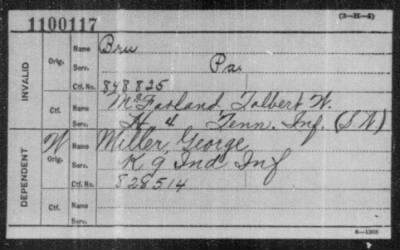 (3-H-2)
1100117
INVALID
Orig.
Name Bru
Serv. Pa.
Ctf. No. 848825
Ctf. Name McFarland Talbert W.
Serv. H 4 Tenn. Inf. (S W)
DEPENDENT
W Orig.
Name Miller, George
Serv. K 9 Ind Inf
Ctf. No. 528514
Ctf.
Name
Serv.